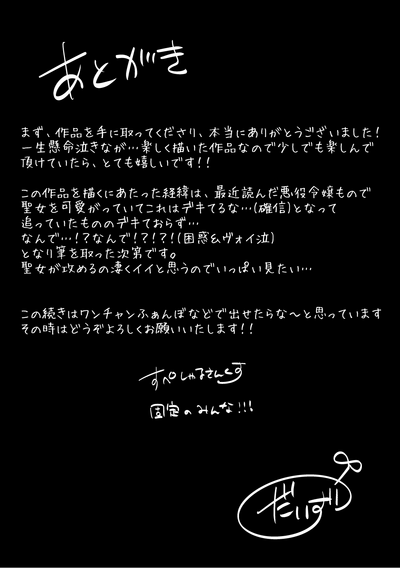 あとがき
まず、作品を手に取ってくださり、本当にありがとうございました!
一生懸命泣きなが…楽しく描いた作品なので少しでも楽しんで
頂けていたら、とても嬉しいです!!
この作品を描くにあたった経緯は、最近読んだ悪役令嬢もので
聖女を可愛がっていてこれはデキてるな…(確信)となって
追っていたもののデキておらず…
なんで…!?なんで!?!?!(困惑&ヴォイ泣)
となり筆を取った次第です。
聖女が攻めるの凄くイイと思うのでいっぱい見たい…
この続きはワンチャンふぁんぼなどで出せたらな〜と思っています
その時はどうぞよろしくお願いいたします!!
すぺしゃるさんくす
固定のみんな!!!
だいずり